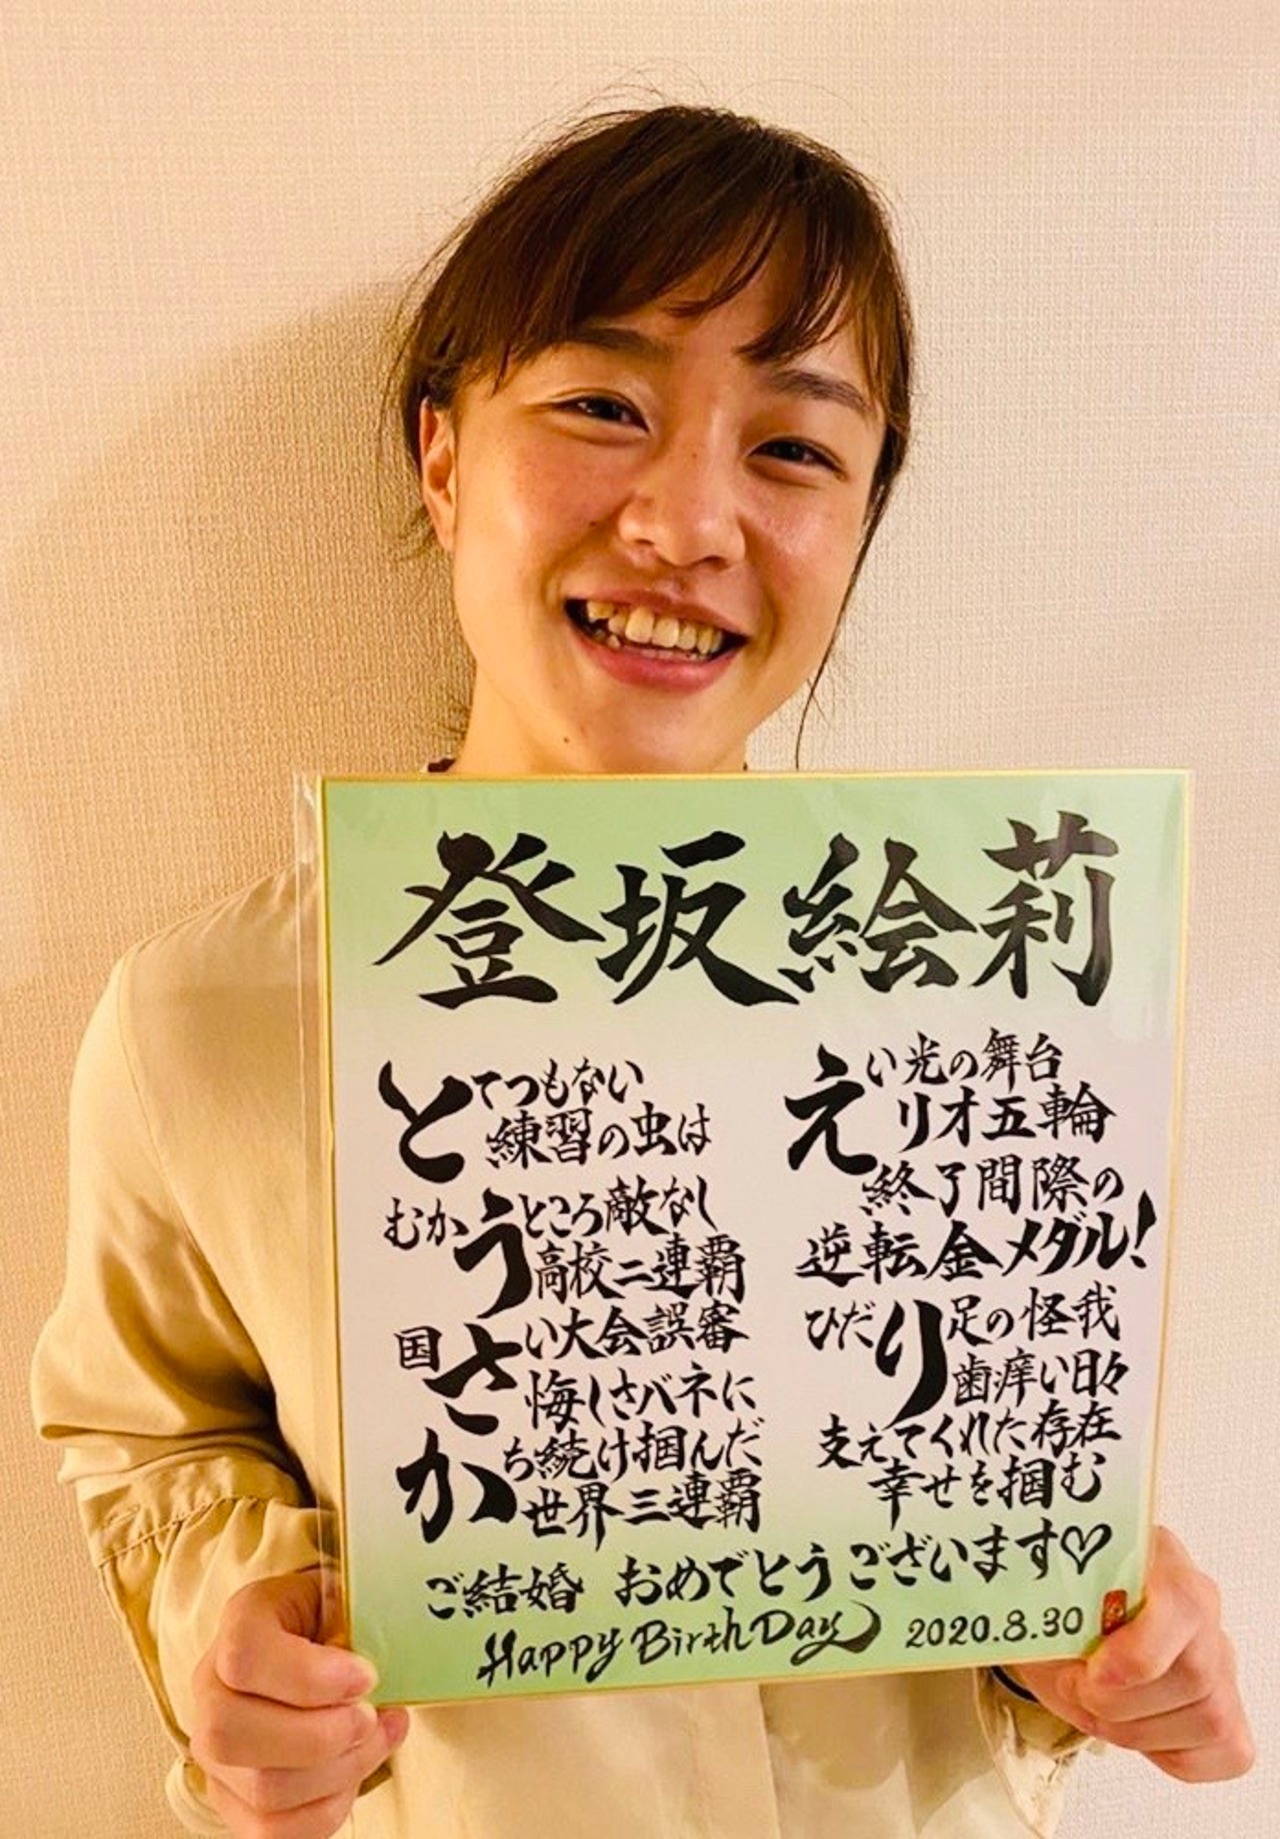 登坂絵莉
とてつもない
練習の虫は
むかうところ敵なし
高校二連覇
国さい大会誤審
悔しさバネに
かち続け掴んだ
世界三連覇
えい光の舞台
リオ五輪
終了間際の
逆転金メダル!
ひだり足の怪我
歯痒い日々
支えてくれた存在
幸せを掴む
ご結婚 おめでとうございます♡
Happy BirthDay 2020.8.30